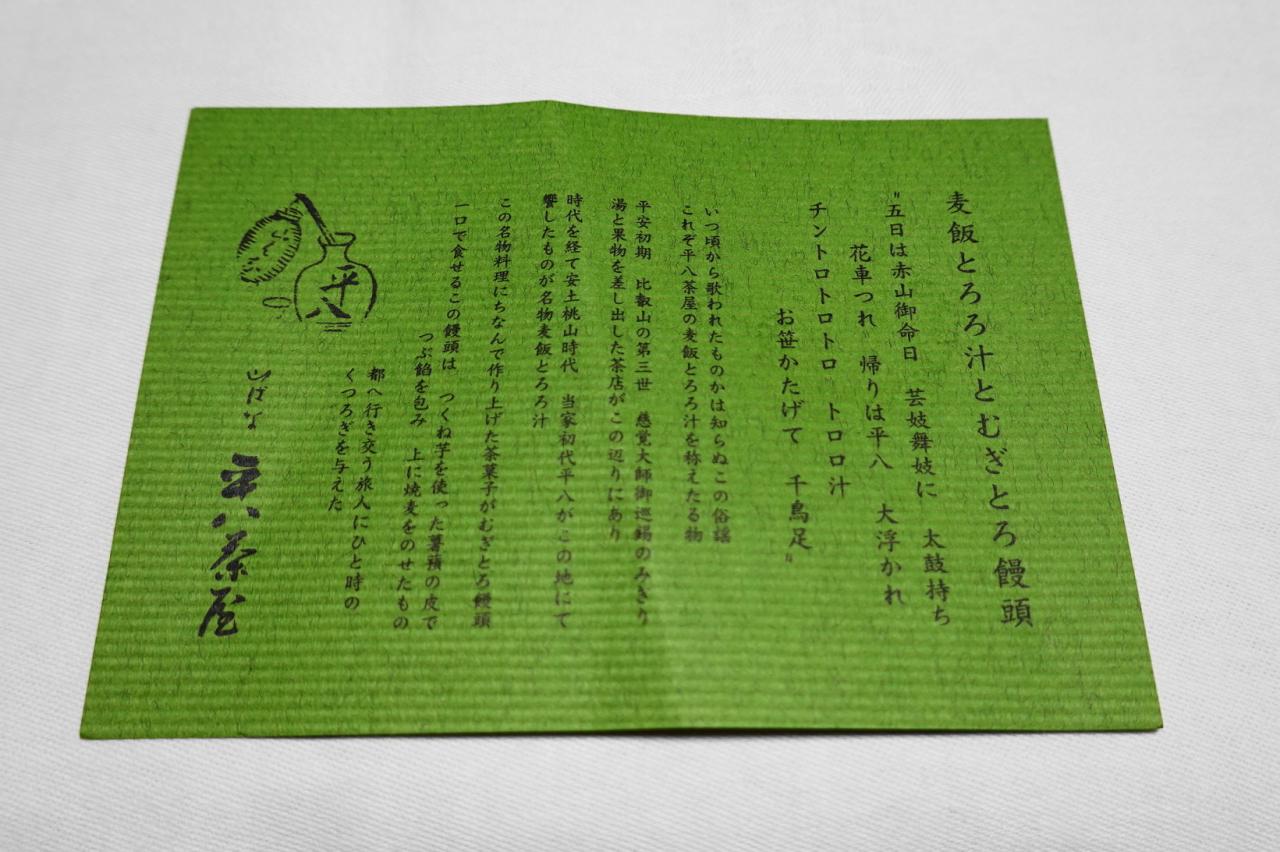 麦飯とろろ汁とむぎとろ饅頭
〝五日は赤山御命日　芸妓舞妓に　太鼓持ち
花車つれ　帰りは平八　大浮かれ
チントロトロトロ　トロロ汁
お笹かたげて　千鳥足〟
いつ頃から歌われたものかは知らぬこの俗謡
これぞ平八茶屋の麦飯とろろ汁を称えたる物
平安初期　比叡山の第三世　慈覚大師御巡錫のみぎり
湯と果物を差し出した茶店がこの辺りにあり
時代を経て安土桃山時代　当家初代平八がこの地にて
饗したものが名物麦飯とろろ汁
この名物料理にちなんで作り上げた茶菓子がむぎとろ饅頭
一口で食せるこの饅頭は　つくね芋を使った薯蕷の皮で
つぶ餡を包み　上に焼麦をのせたもの
都へ行き交う旅人にひと時の
くつろぎを与えた
平八
山ばな　平八茶屋